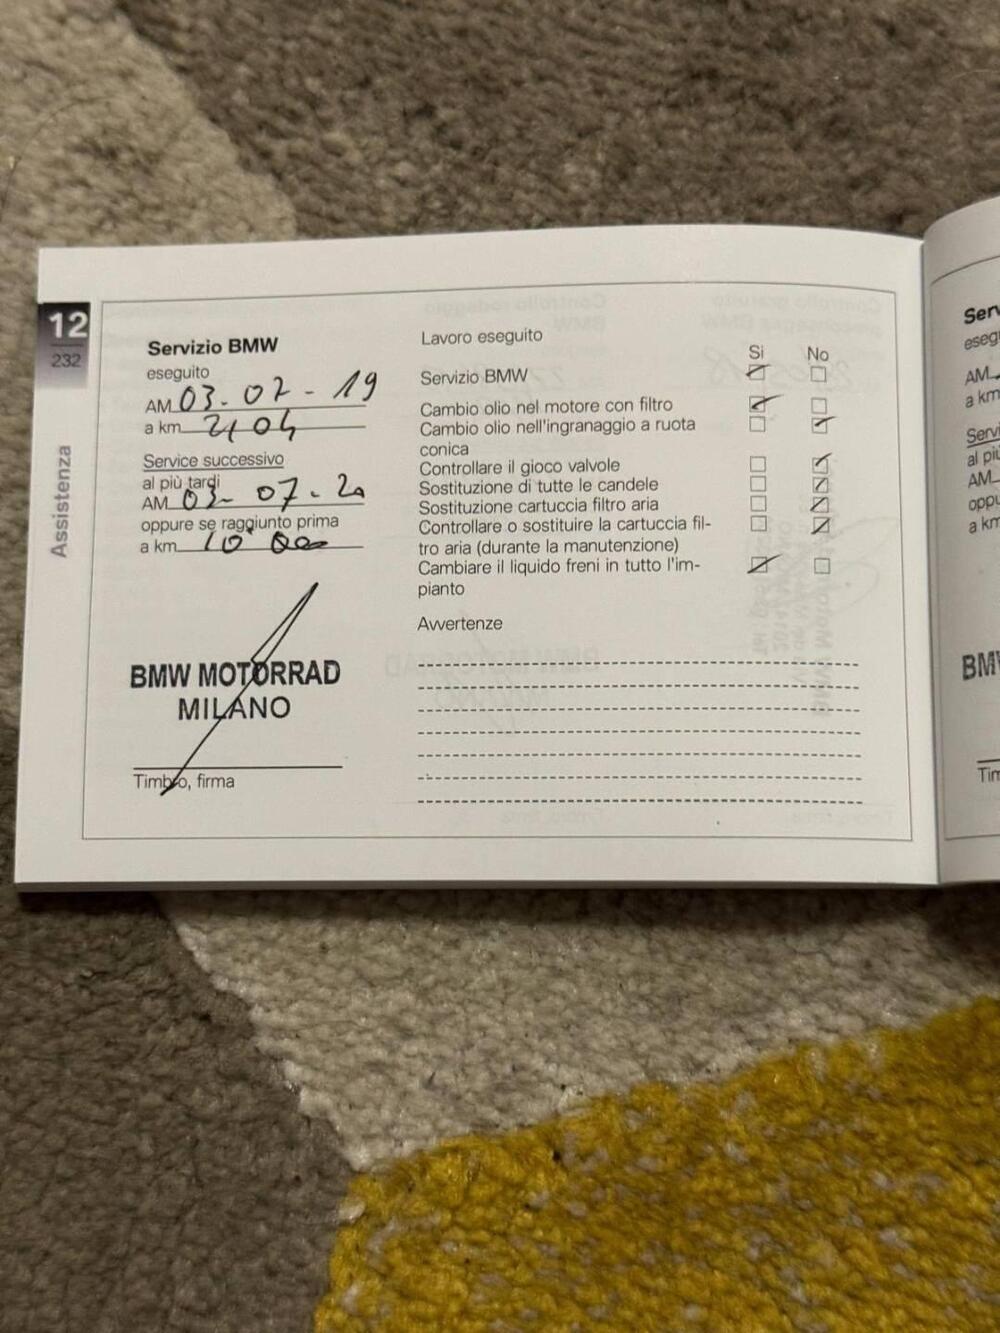 12
232
Assistenza
Servizio BMW
eseguito
AM 03-07-19
a km 2104
Service successivo
al più tardi
AM 03-07-20
oppure se raggiunto prima
a km 10000
BMW MOTORRAD
MILANO
Timbro, firma
Lavoro eseguito
Si No
Servizio BMW
Cambio olio nel motore con filtro
Cambio olio nell'ingranaggio a ruota
conica
Controllare il gioco valvole
Sostituzione di tutte le candele
Sostituzione cartuccia filtro aria
Controllare o sostituire la cartuccia fil-
tro aria (durante la manutenzione)
Cambiare il liquido freni in tutto l'im-
pianto
Avvertenze
AM
a km
AM
a km